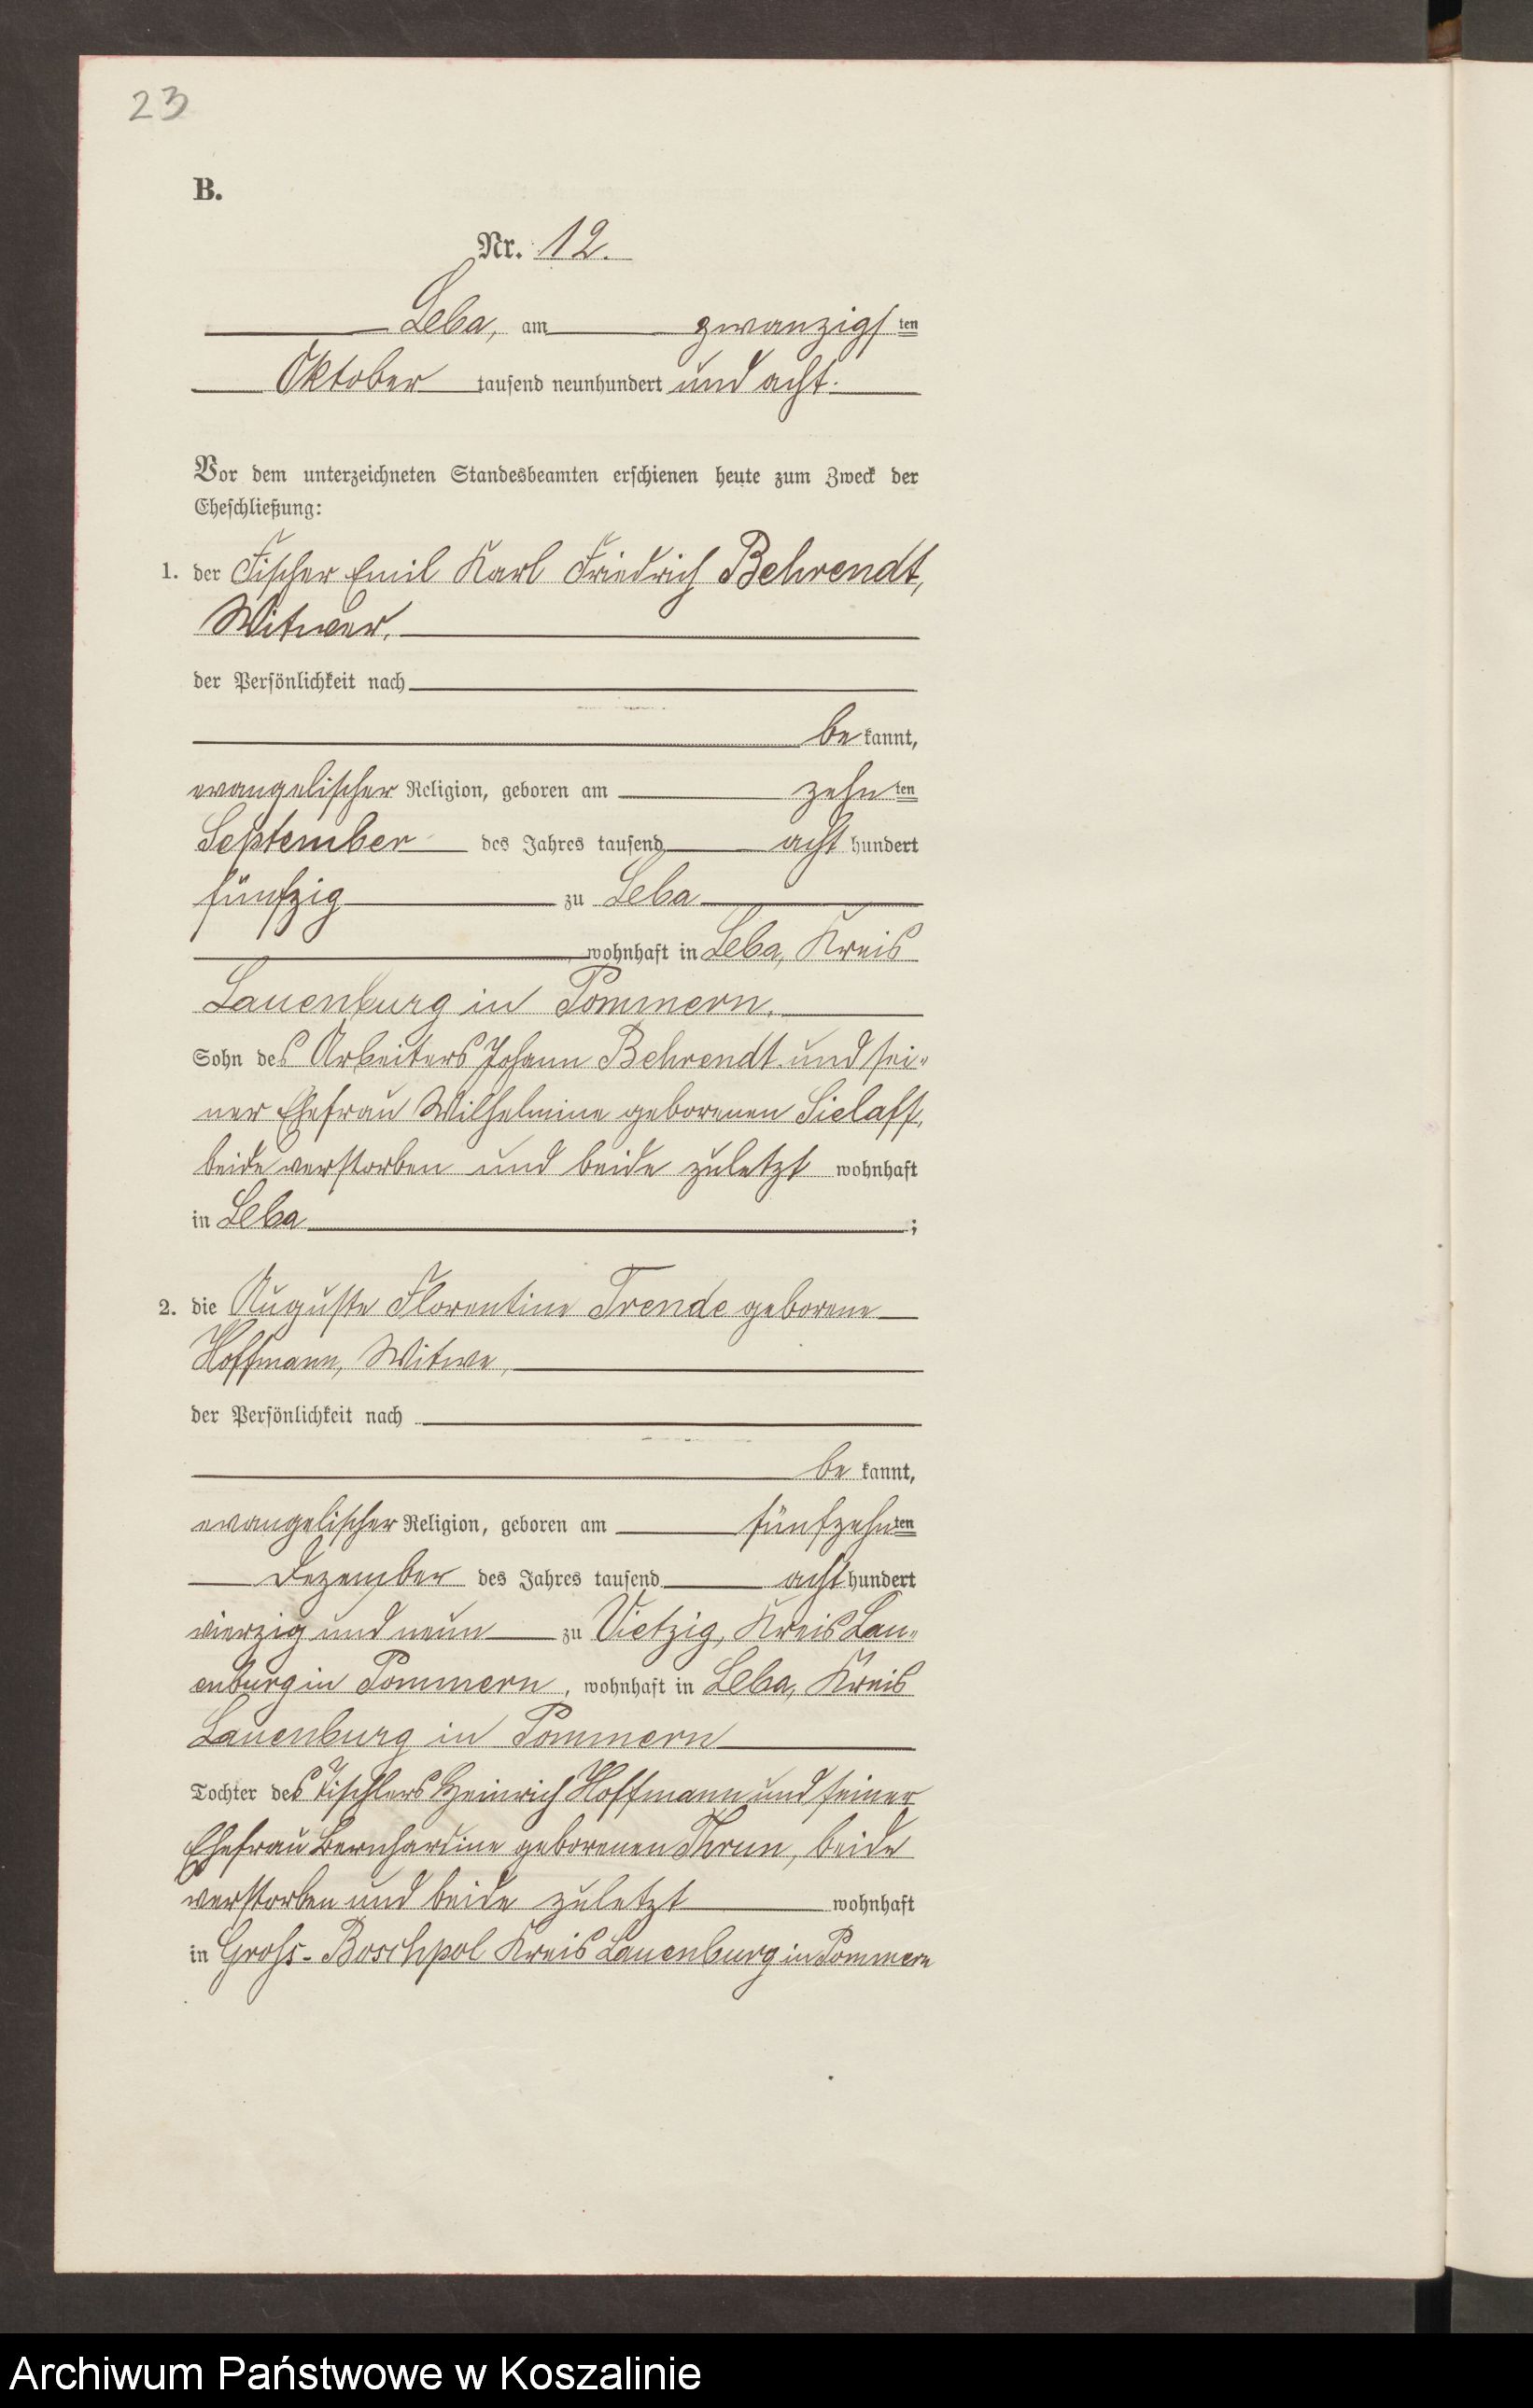 23
B.
Nr. 12.
Leba, am zwanzigsten
Oktober tausend neunhundert und acht.
Vor dem unterzeichneten Standesbeamten erschienen heute zum Zweck der
Eheschließung:
1. der Fischer Emil Karl Friedrich Behrendt,
Witwer,
der Persönlichkeit nach
be kannt,
evangelischer Religion, geboren am zehnten
September des Jahres tausend acht hundert
fünfzig zu Leba
wohnhaft in Leba, Kreis
Lauenburg in Pommern.
Sohn des Arbeiters Johann Behrendt und sei-
ner Ehefrau Wilhelmine geborenen Sielaff,
beide verstorben und beide zuletzt wohnhaft
in Leba ;
2. die Auguste Florentine Trende geborene
Hoffmann, Witwe,
der Persönlichkeit nach
be kannt,
evangelischer Religion, geboren am fünfzehnten
Dezember des Jahres tausend acht hundert
vierzig und neun zu Vietzig, Kreis Lau-
enburg in Pommern, wohnhaft in Leba, Kreis
Lauenburg in Pommern
Tochter des Tischlers Heinrich Hoffmann und seiner
Ehefrau Bernhardine geborenen Thrun, beide
verstorben und beide zuletzt wohnhaft
in Groß-Boschpol Kreis Lauenburg in Pommern
Archiwum Państwowe w Koszalinie